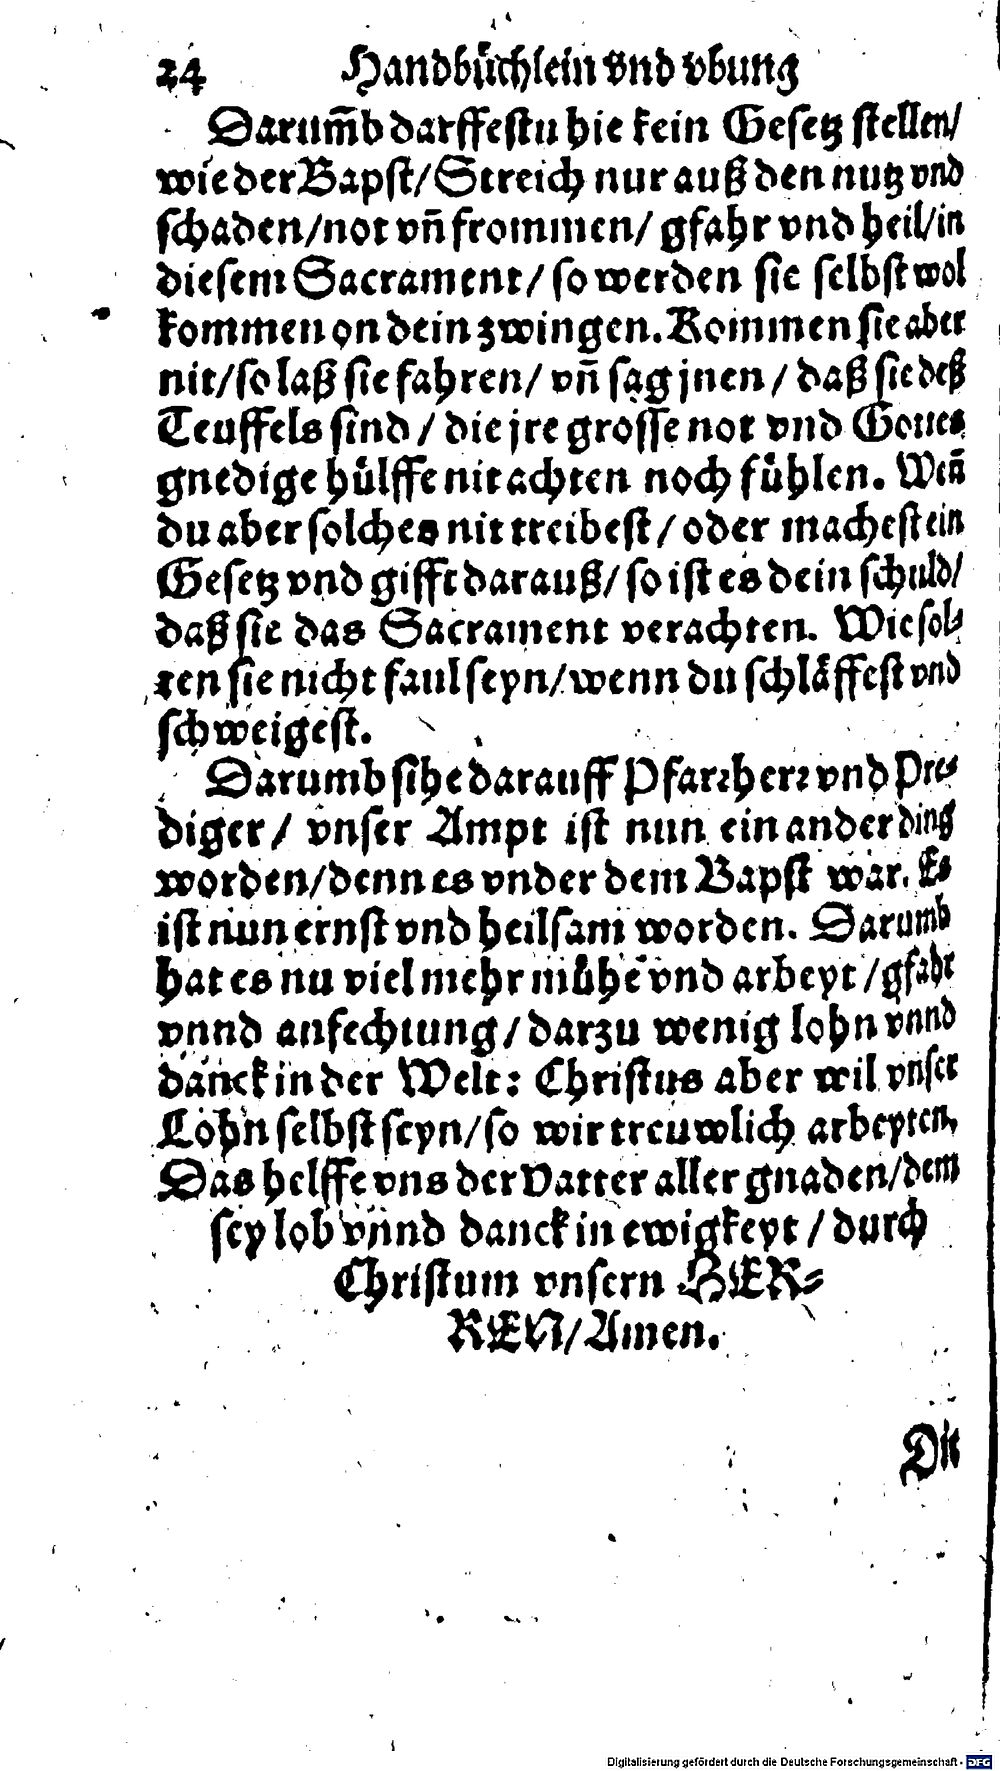 24 Handbüchlein vnd vbung
Darum̄b darffestu hie kein Gesetz stellen/
wie der Bapst/Streich nur auß den nutz vnd
schaden/not vn̄ frommen/ gfahr vnd heil/in
diesem Sacrament/ so werden sie selbst wol
kommen on dein zwingen. Kommen sie aber
nit/so laß sie fahren/ vn̄ sag jnen/ daß sie deß
Teuffels sind/ die jre grosse not vnd Gottes
gnedige hülffe nit achten noch fühlen. Wen̄
du aber solches nit treibest/ oder machest ein
Gesetz vnd gifft darauß/ so ist es dein schuld/
daß sie das Sacrament verachten. Wie sol⸗
ten sie nicht faul seyn/ wenn du schläffest vnd
schweigest.
Darumb sihe darauff Pfarrherr vnd Pre⸗
diger/ vnser Ampt ist nun ein ander ding
worden/denn es vnder dem Bapst war. Es
ist nun ernst vnd heilsam worden. Darumb
hat es nu viel mehr mühe vnd arbeyt/gfahr
vnnd anfechtung/ darzu wenig lohn vnnd
danck in der Welt: Christus aber wil vnser
Lohn selbst seyn/so wir treuwlich arbeyten,
Das helffe vns der Vatter aller gnaden/dem
sey lob vnnd danck in ewigkeyt/ durch
Christum vnsern HER⸗
REN/Amen.
Die
Digitalisierung gefördert durch die Deutsche Forschungsgemeinschaft - DFG